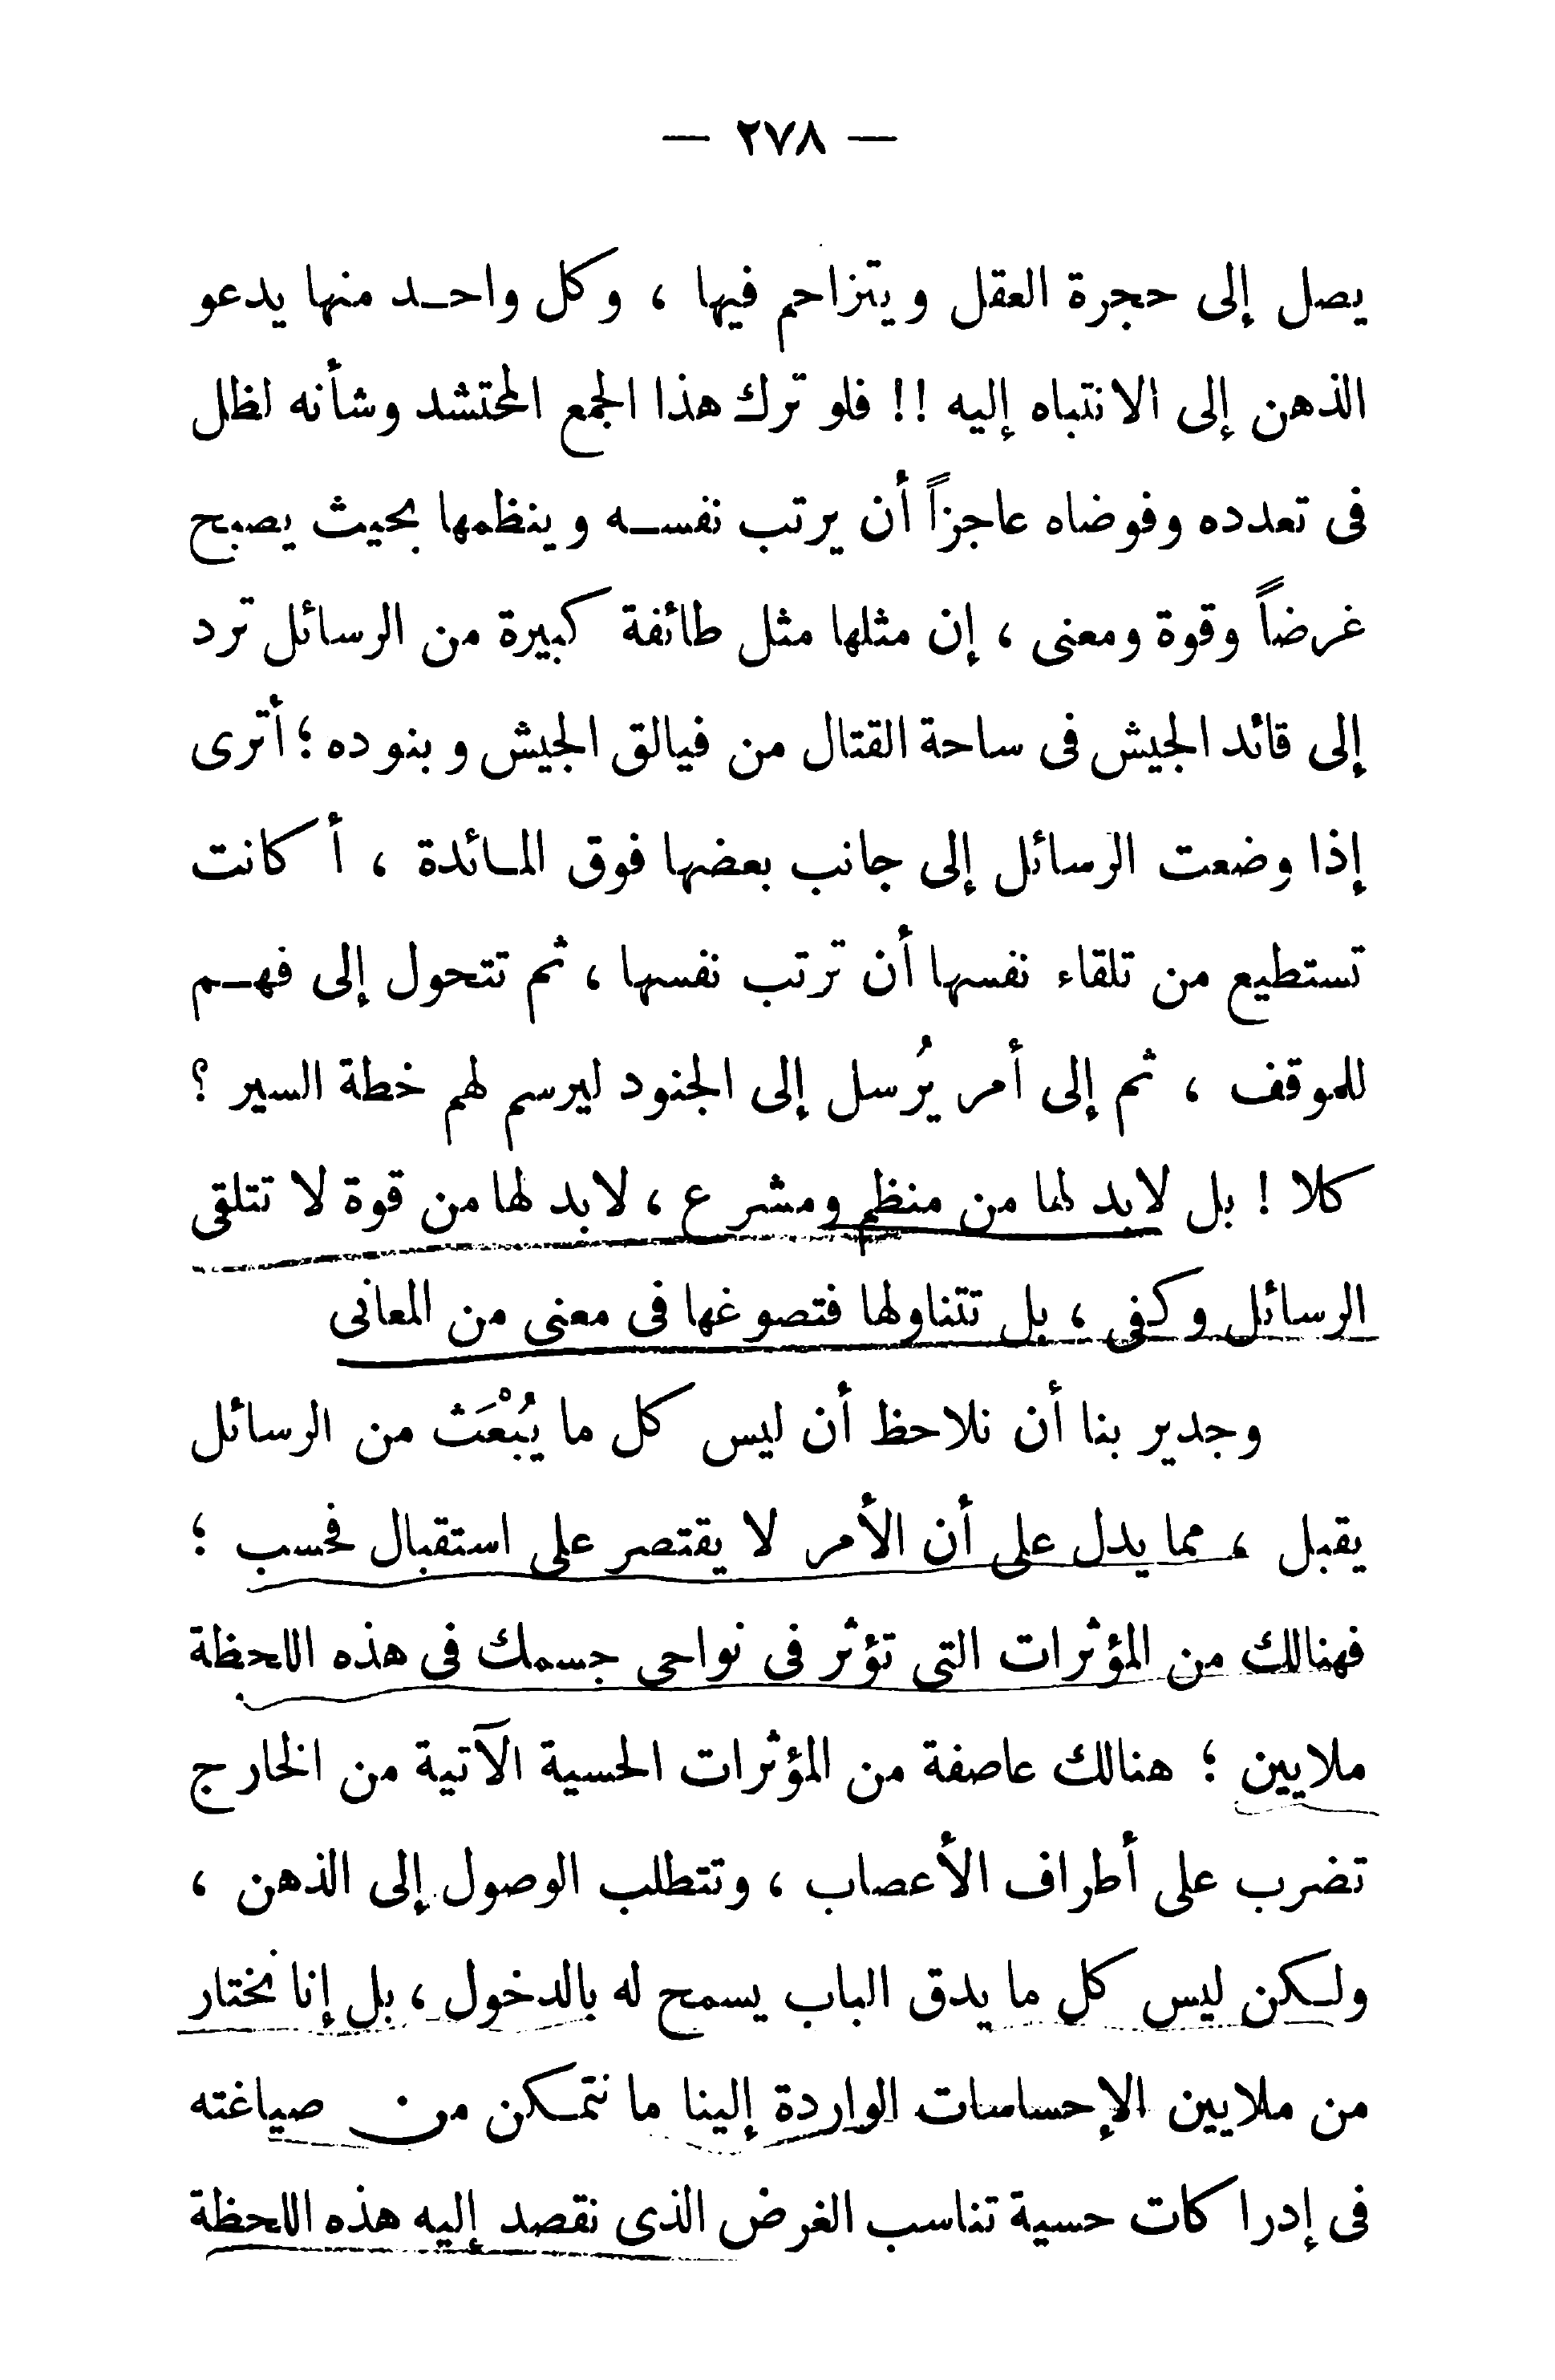 — ٢٧٨ —
يصل إلى حجرة العقل ويتزاحم فيها ، وكل واحد منها يدعو
الذهن إلى الانتباه إليه !! فلو ترك هذا الجمع المحتشد وشأنه لظل
فى تعدده وفوضاه عاجزاً أن يرتب نفسه وينظمها بحيث يصبح
غرضاً وقوة ومعنى ، إن مثلها مثل طائفة كبيرة من الرسائل ترد
إلى قائد الجيش فى ساحة القتال من فيالق الجيش وبنوده ؛ أترى
إذا وضعت الرسائل إلى جانب بعضها فوق المائدة ، أكانت
تستطيع من تلقاء نفسها أن ترتب نفسها ، ثم تتحول إلى فهم
للموقف ، ثم إلى أمر يُرسل إلى الجنود ليرسم لهم خطة السير ؟
كلا ! بل لابد لها من منظم ومشرع ، لابد لها من قوة لا تتلقى
الرسائل وكفى ، بل تتناولها فتصوغها فى معنى من المعانى
وجدير بنا أن نلاحظ أن ليس كل ما يُبْعَث من الرسائل
يقبل ، مما يدل على أن الأمر لا يقتصر على استقبال فحسب ؛
فهنالك من المؤثرات التى تؤثر فى نواحى جسمك فى هذه اللحظة
ملايين ؛ هنالك عاصفة من المؤثرات الحسية الآتية من الخارج
تضرب على أطراف الأعصاب ، وتتطلب الوصول إلى الذهن ،
ولكن ليس كل ما يدق الباب يسمح له بالدخول ، بل إنا نختار
من ملايين الإحساسات الواردة إلينا ما نتمكن من صياغته
فى إدراكات حسية تناسب الغرض الذى نقصد إليه هذه اللحظة